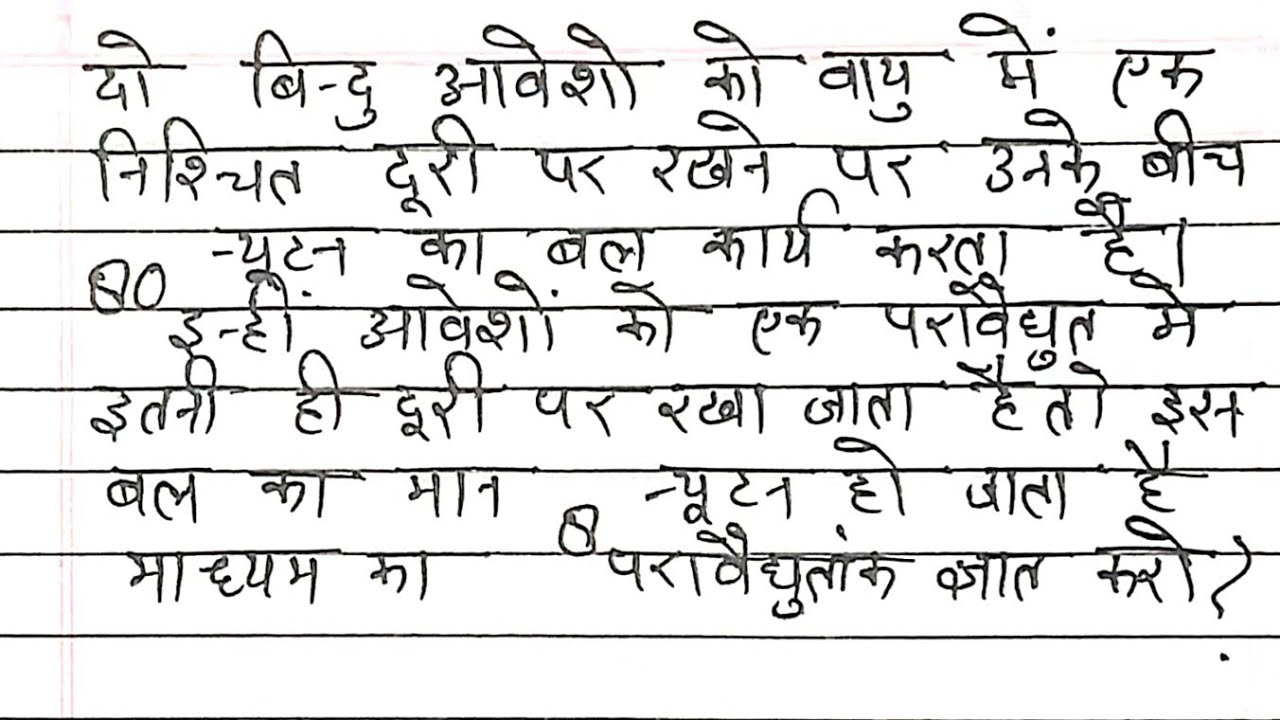 दो बिन्दु आवेशो को वायु में एक
निश्चित दूरी पर रखने पर उनके बीच
80 न्यूटन का बल कार्य करता है।
इन्हीं आवेशों को एक परावैधुत मे
इतनी ही दूरी पर रखा जाता है तो इस
बल का मान 8 न्यूटन हो जाता है
माध्यम का परावैधुतांक ज्ञात करो?